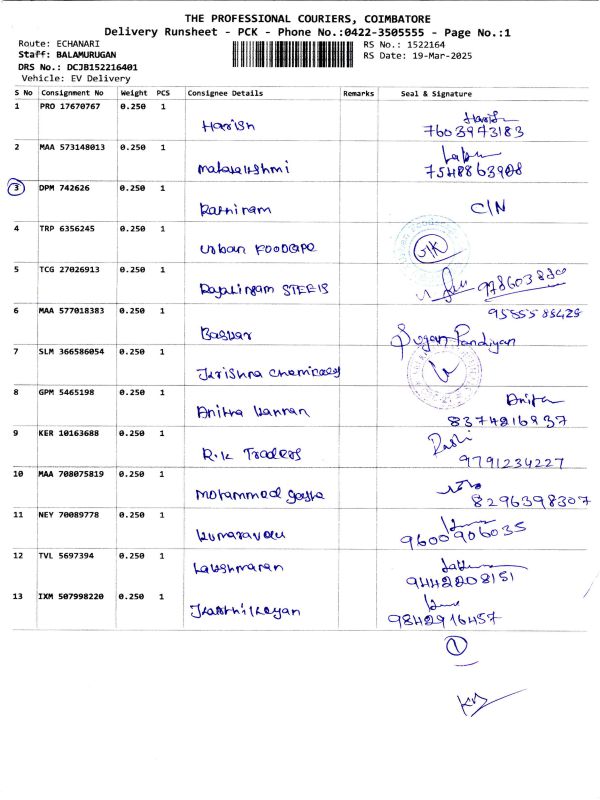 THE PROFESSIONAL COURIERS, COIMBATORE
Delivery Runsheet - PCK - Phone No.:0422-3505555 - Page No.:1
Route: ECHANARI
RS No.: 1522164
Staff: BALAMURUGAN
RS Date: 19-Mar-2025
DRS No.: DCJB152216401
Vehicle: EV Delivery
S No Consignment No Weight PCS Consignee Details Remarks Seal & Signature
1 PRO 17670767 0.250 1 Harish Harish
7603973183
2 MAA 573148013 0.250 1 mahalakshmi
7548863908
3 DPM 742626 0.250 1 Kathiram C/N
4 TRP 6356245 0.250 1 Urban FOODGPE
5 TCG 27026913 0.250 1 Rajalingam STERIS
6 MAA 577018383 0.250 1 Baskar 95555 88428
Sugan Pandiyan
7 SLM 366586054 0.250 1 Krishna chemicals
8 GPM 5465198 0.250 1 Anitha kannan Anitha
8374216937
9 KER 10163688 0.250 1 R.K Traders
9791234227
10 MAA 708075819 0.250 1 Mohammed
8296398307
11 NEY 70089778 0.250 1 kumaravelu
9600906035
12 TVL 5697394 0.250 1 Lakshmanan
9442208151
13 IXM 507998220 0.250 1 Karthikeyan
9842916457
1